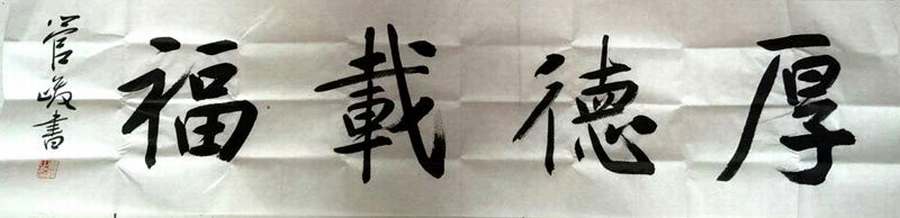 厚德載福
管峻書